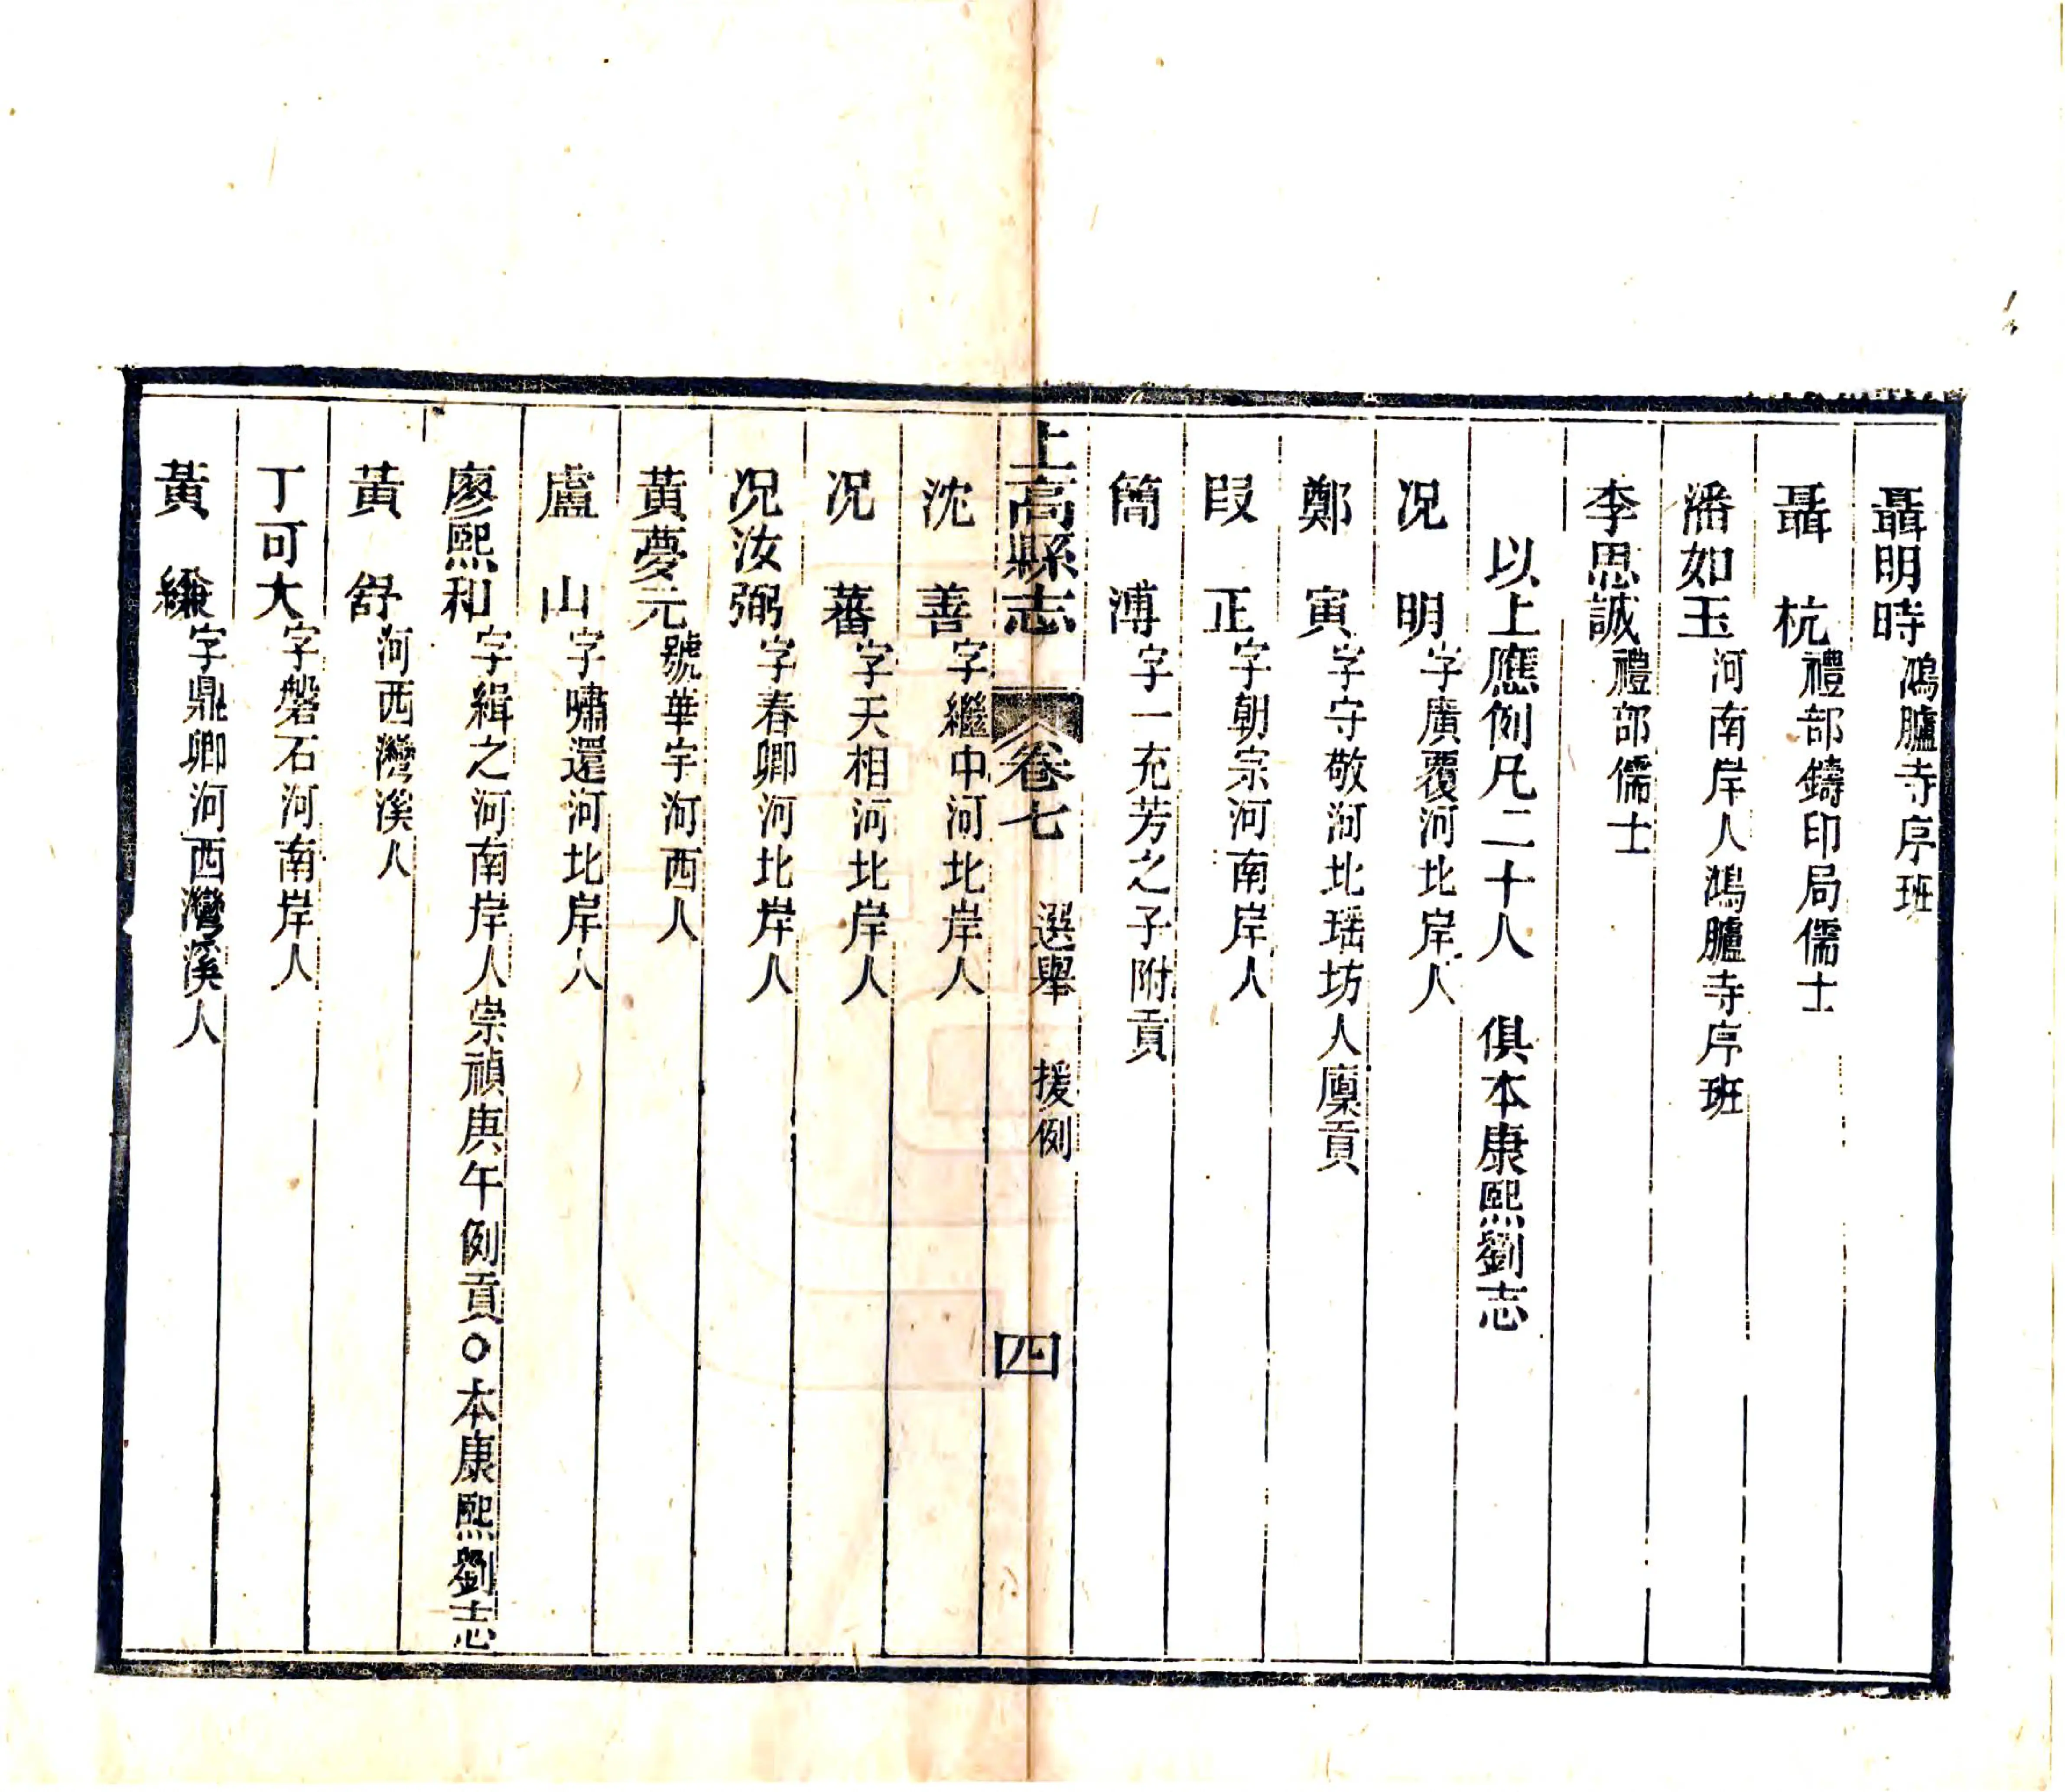 聶明時鴻臚寺序班
聶杭禮部鑄印局儒士
潘如玉河南岸人鴻臚寺序班
李思誠禮部儒士
以上應例凡二十人 俱本康熙劉志
况明字廣覆河北岸人
鄭寅字守敬河北瑶坊人廩貢
段正字朝宗河南岸人
簡溥字一充芳之子附貢
上高縣志 卷七 選舉 援例 四
沈善字繼中河北岸人
况蕃字天相河北岸人
况汝弼字春卿河北岸人
黃夢元號華宇河西人
盧山字嘯還河北岸人
廖熙和字緝之河南岸人崇禎庚午例貢○本康熙劉志
黃舒河西灣溪人
丁可大字磐石河南岸人
黃縑字鼎卿河西灣溪人